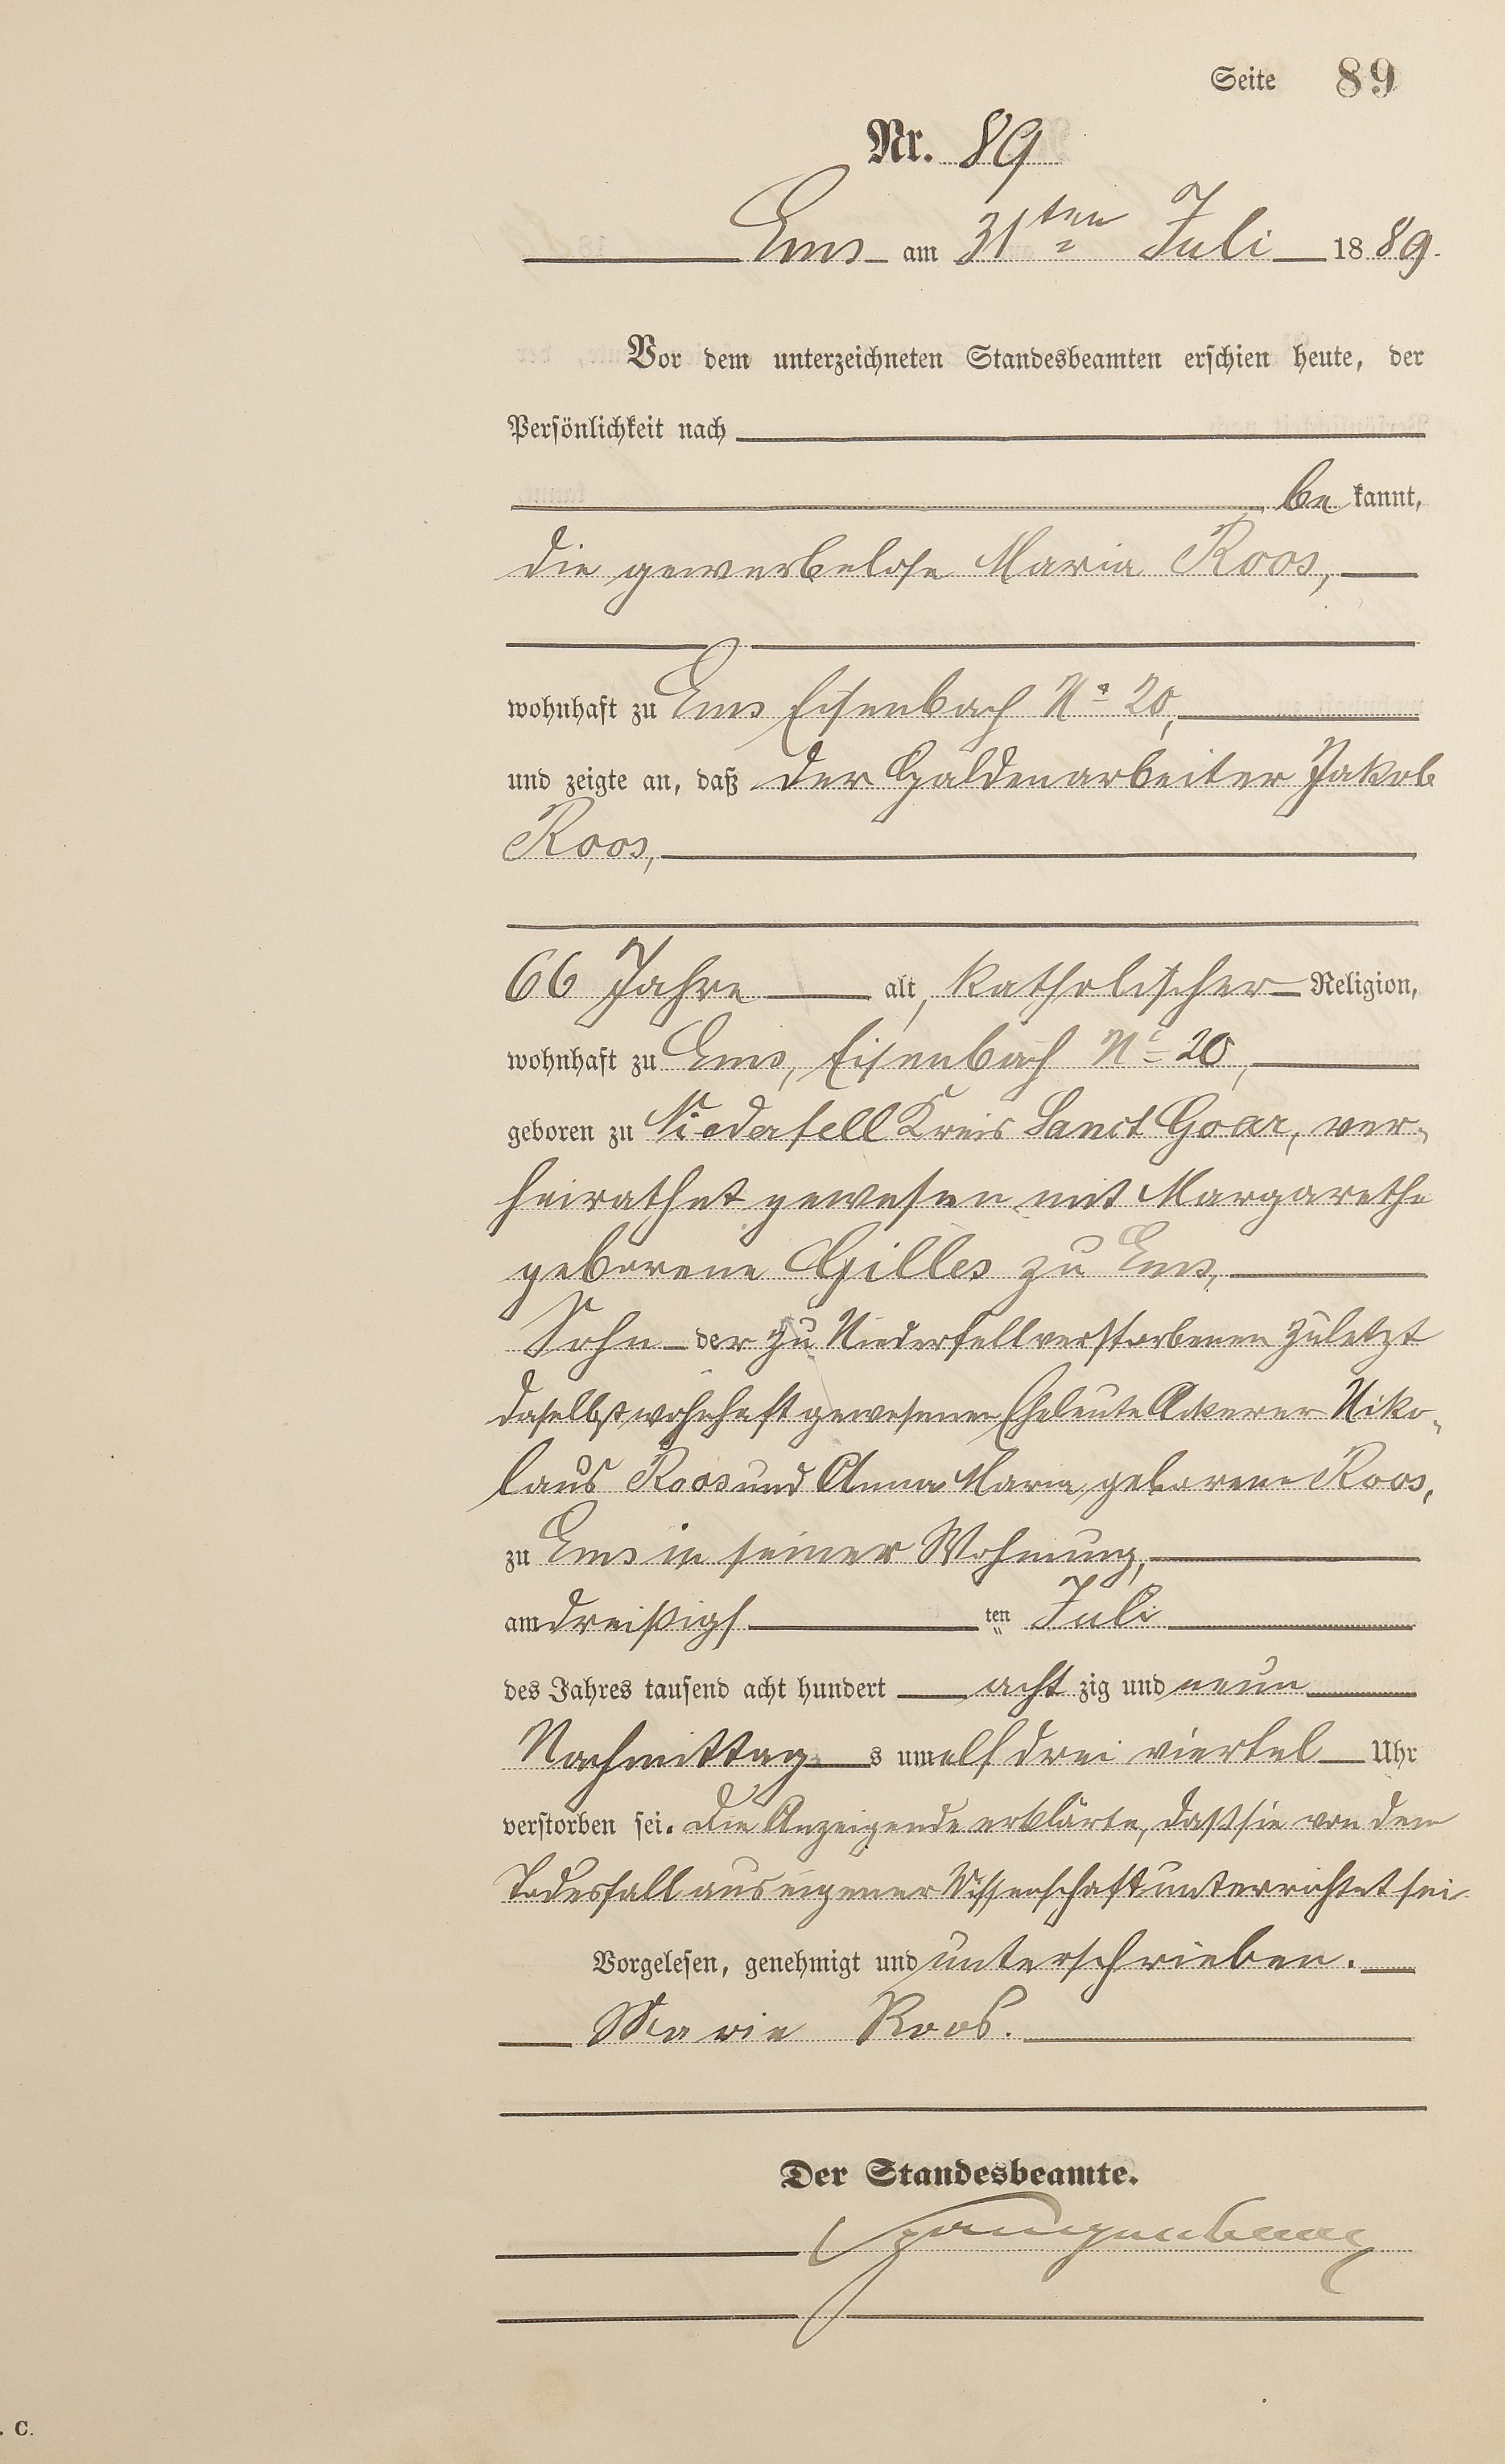 Seite 89
Nr. 89
Ems am 31ten Juli 1889.
Vor dem unterzeichneten Standesbeamten erschien heute, der
Persönlichkeit nach
be kannt,
die gewerbelose Maria Roos,
wohnhaft zu Ems Eisenbach No 20,
und zeigte an, daß der Haldenarbeiter Jakob
Roos,
66 Jahre alt, katholischer Religion,
wohnhaft zu Ems, Eisenbach No 20,
geboren zu Niederfell Kreis Sanct Goar, ver-
heirathet gewesen mit Margarethe
geborene Gilles zu Ems,
Sohn der zu Niederfell verstorbenen zuletzt
daselbst wohnhaft gewesenen Eheleute Ackerer Niko-
laus Roos und Anna Maria, geborene Roos,
zu Ems in seiner Wohnung,
am dreißigsten Juli
des Jahres tausend acht hundert acht zig und neun
Nachmittags um elf drei viertel Uhr
verstorben sei. Die Anzeigende erklärte, daß sie von dem
Todesfall aus eigener Wissenschaft unterrichtet sei
Vorgelesen, genehmigt und unterschrieben.
Maria Roos.
Der Standesbeamte.
. C.